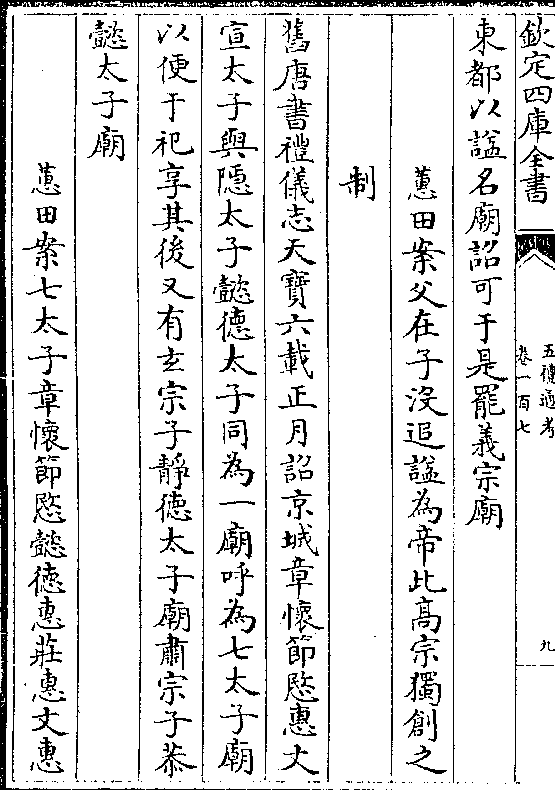 欽定四庫全書
五禮通考
卷一百七
九
東都以諡名廟詔可于是罷義宗廟
蕙田案父在子沒追諡為帝此髙宗獨創之
制
舊唐書禮儀志天寶六載正月詔京城章懷節愍惠文
宣太子與隱太子懿德太子同為一廟呼為七太子廟
以便于祀享其後又有玄宗子靜德太子廟肅宗子恭
懿太子廟
蕙田案七太子章懷節愍懿德惠莊惠文惠